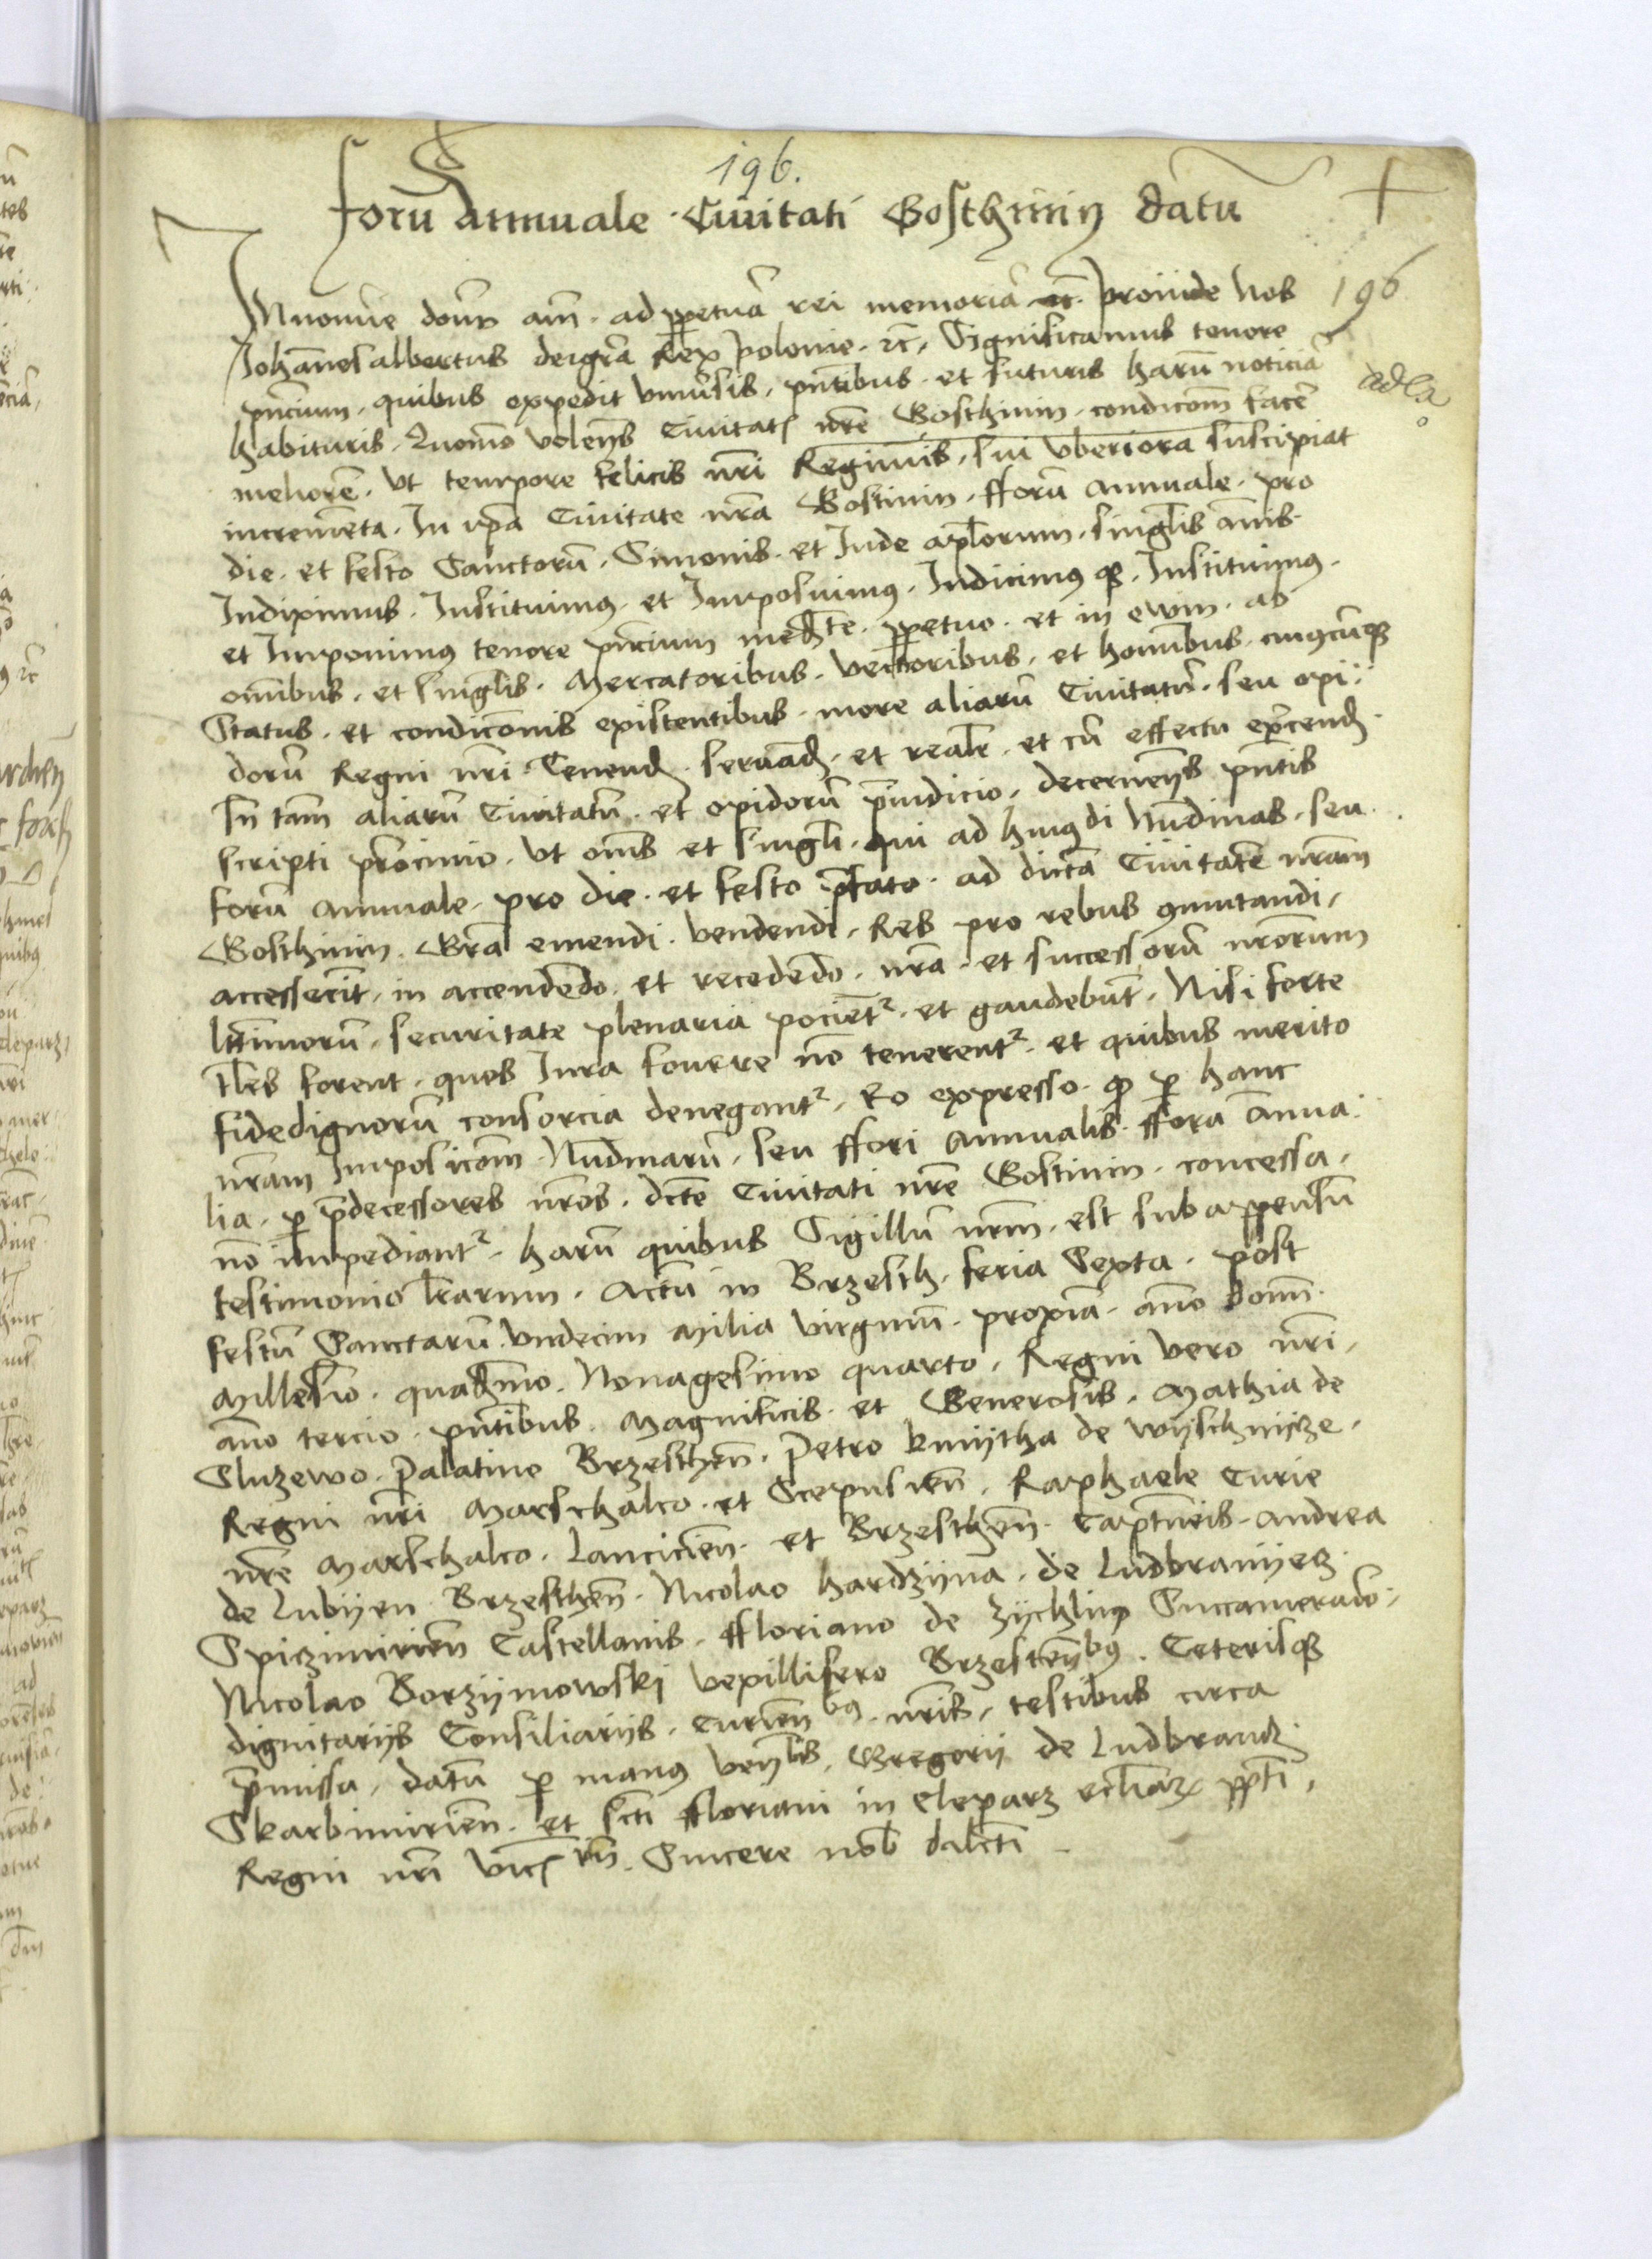 196.
foru Annuale Ciuitati Gosthinin datu
196
adla
In nomie domi am. ad ppetua rei memoria rc. Proinde Nos
Johanes albertus dei gra Rex Polonie. rc, Significamus tenore
pncium, quibus expedit vniuersis, pntibus et futuris haru noticia
habituris. Quomo volens Ciuitatis nre Gosthinin condicom face
meliore. vt tempore felicis nri Regiminis, sui vberiora suscipiat
incremeta. In ipa Ciuitate nra Gostinin, fforu annuale, pro
die et festo Sanctoru, Simonis et Jude aplorum, singlis anis
Indiximus. Instituimus et Imposuimus. Indicimus q3. Instituimus
et Imponimus tenore pncium mediate. ppetuo et in ewm. ab
omibus, et singlis. Mercatoribus, vectoribus, et homibus. cuiuscuq3
Status. et condicionis existentibus. more aliaru Ciuitatu. seu opi:
doru Regni nri Tenend. seruand, et realr et cu effectu excend
Sn tam aliaru Ciuitatu et opidoru piudicio, decernens pntis
scripti procinio. vt omes et singli. qui ad huiusdi Nudinas, seu
foru annuale, pro die et festo pfato. ad dicta Ciuitate nram
Gosthinin. Gra emendi. vendendi, Res pro rebus comutandi,
accesserit, in accendedo et recededo. nra et successoru nrorum
litimoru, securitate plenaria pociet et gaudebut, Nisi forte
tles forent, quos Jura fouere no tenerent et quibus merito
fidedignoru consorcia denegant, Eo expresso. q p hanc
nram Imposicom Nudinaru, seu ffori annualis. ffora annua
lia. p pdecessores nros. dcte Ciuitati nre Gostinin. concessa,
no impediant. haru quibus Sigillu nrm est subappensu
testimonio lrarum. Actu in Brzesth, feria Sexta. post
festu Sanctaru vndecim Milia virginu. proxia. ano domi
Millesio. quadmo. Nonagesimo quarto, Regni vero nri,
ano tercio. pntibus. Magnificis et Generosis, Mathia de
Sluzewo. Palatino Brzesthen. Petro kmytha de wyschnycze,
Regni nri Marschalco. et Scepusien. Raphaele Curie
nre Marschalco. Lancicien. et Brzesthen. Captneis. Andrea
de Lubyen Brzesthen. Nicolao hardzyna. de Ludbranyecz
Spiczimirien Castellanis. ffloriano de Zychlino Succamerario;
Nicolao Borzymowski vexillifero Brzestenbus. Ceterisq3
dignitarys Consiliarys. Curien bus nris, testibus circa
pmissa, datu p manus venlis, Gregory de Ludbrancz
Skarbimirien. et scti ffloriani in Cleparz ecliaru ppti,
Regni nri vice rii. Sincere nob dalcti